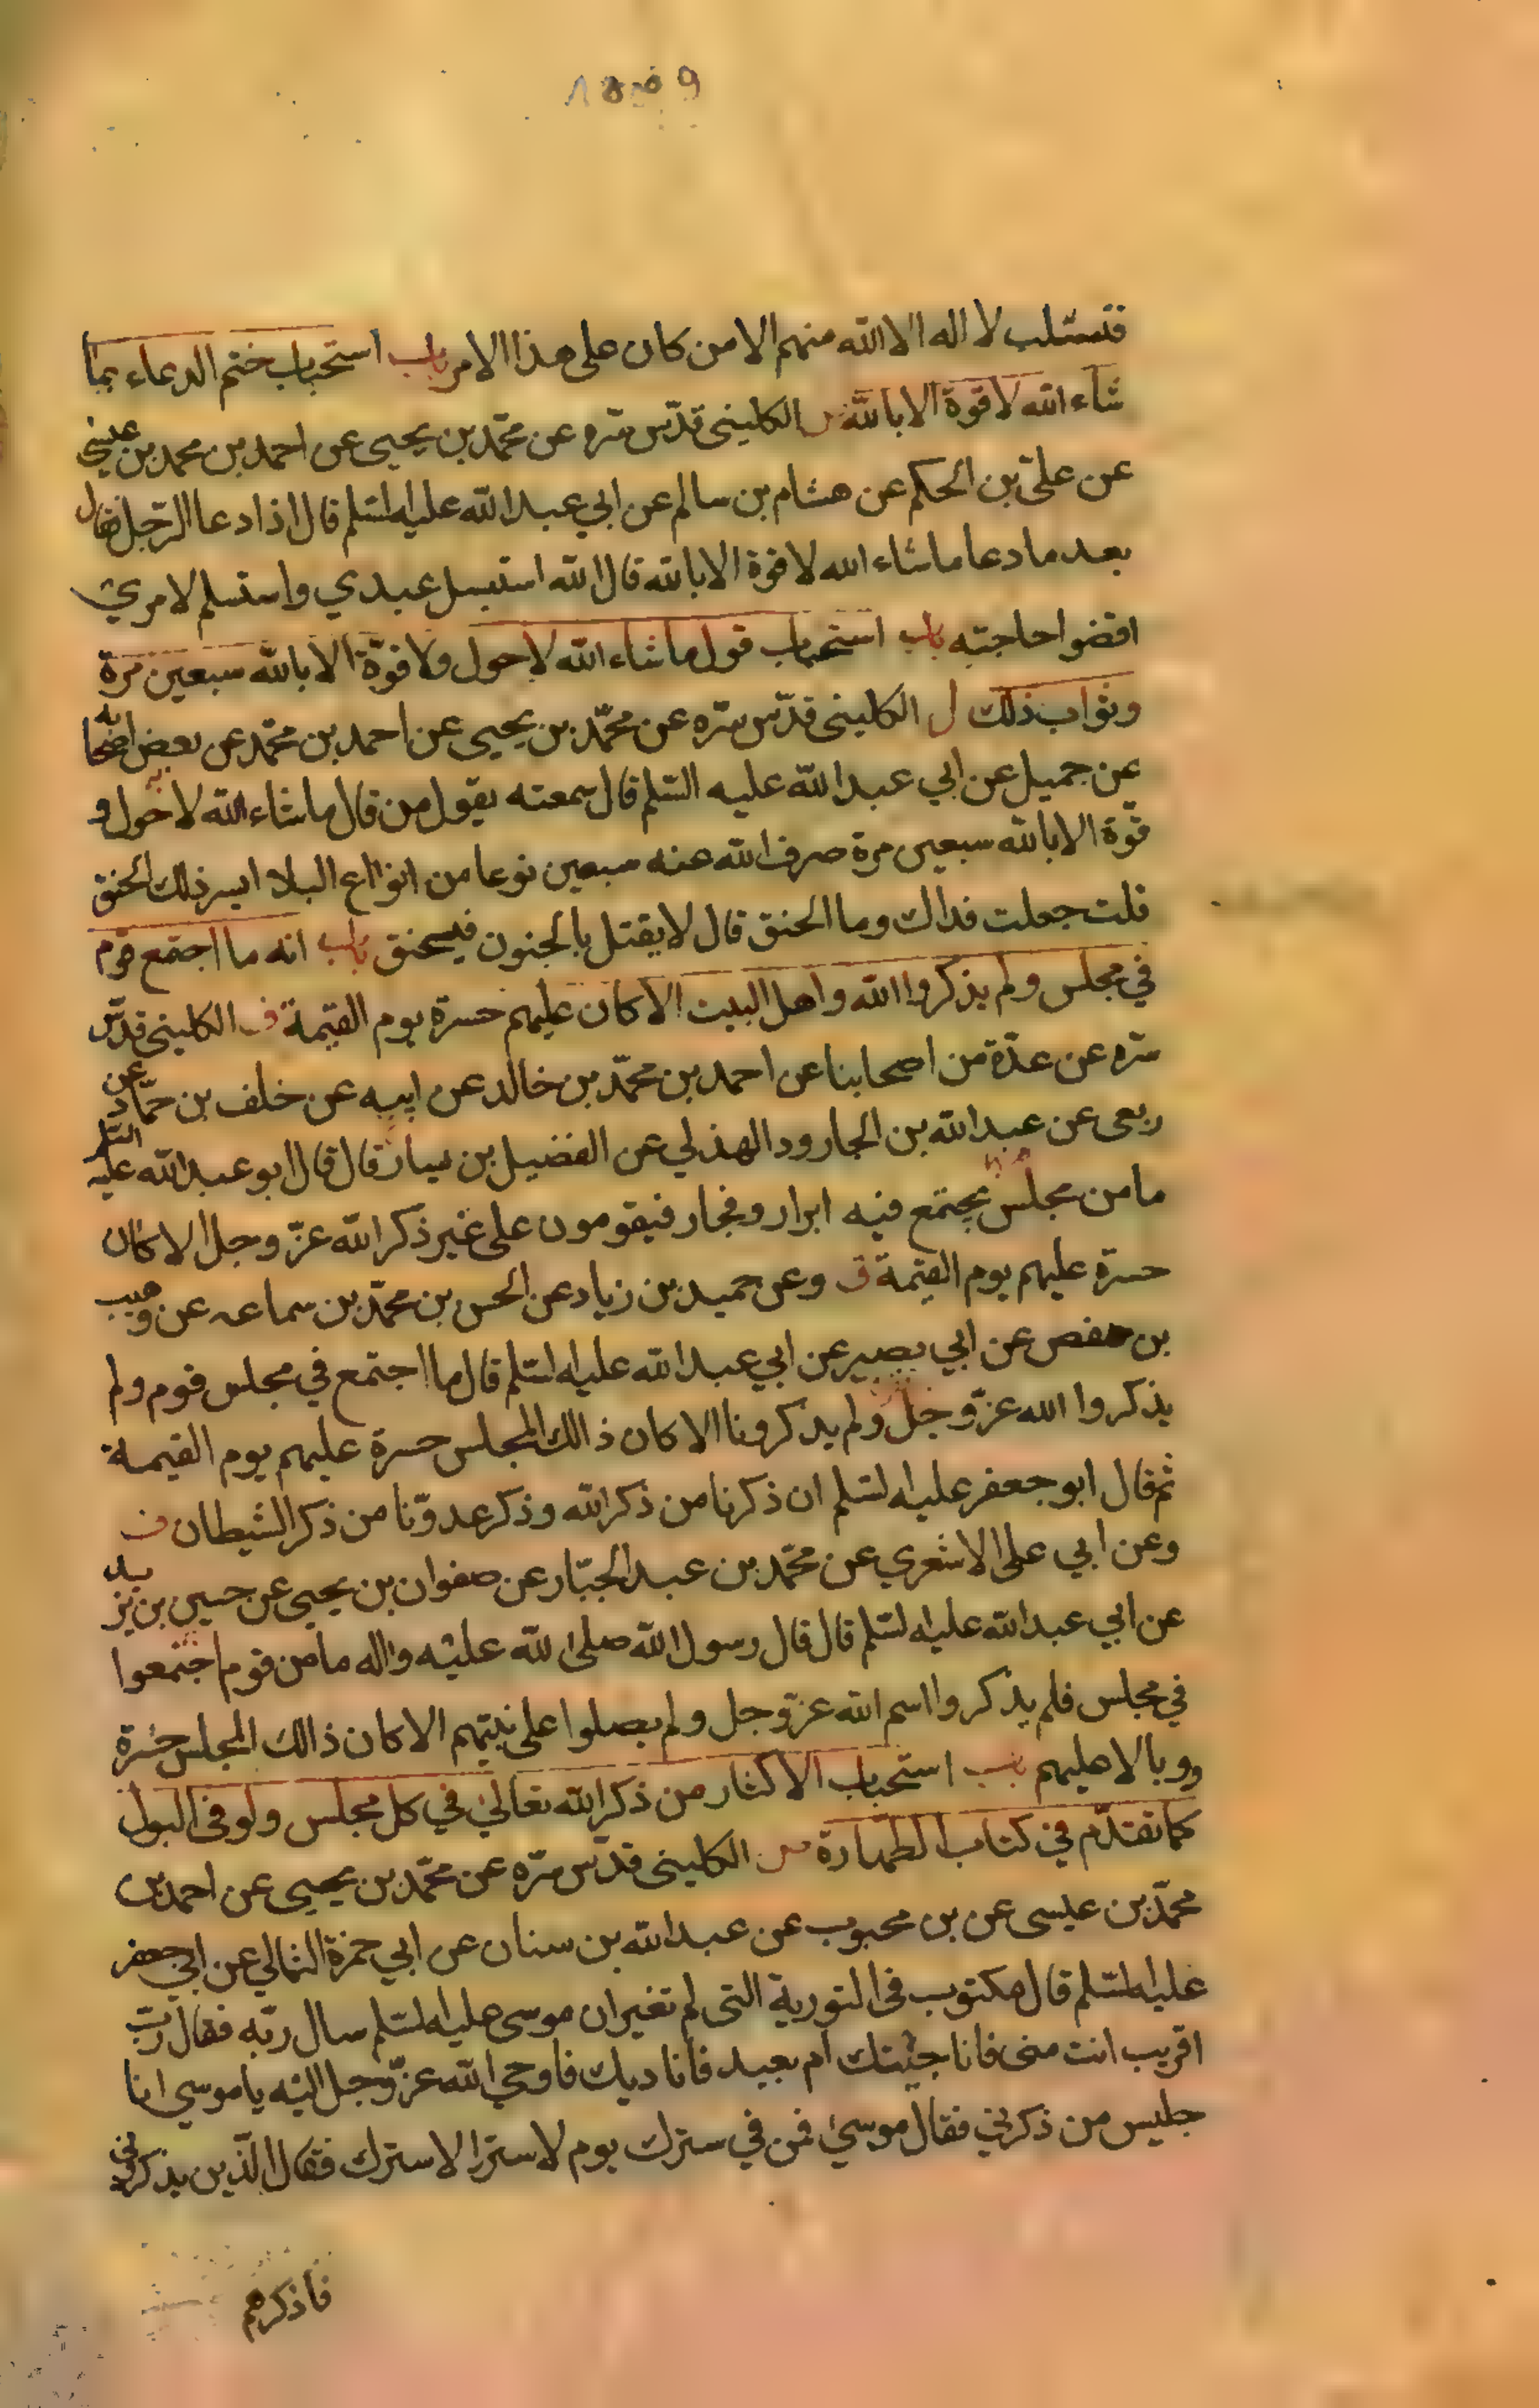 فتستلب لا اله الا الله منهم الا من كان على هذا الامر باب استحباب ختم الدعاء بما
شاء الله لا قوة الا بالله الكليني قدّس سّره عن محمّد بن يحيى عن احمد بن محمد بن عيسى
عن علىّ بن الحكم عن هشام بن سالم عن ابي عبد الله عليه السّلم قال اذا دعا الرّجل فقال
بعد ما دعا ما شاء الله لا قوة الا بالله قال الله استبسل عبدي واستسلم لامري
اقضوا حاجته باب استحباب قول ما شاء الله لا حول ولا قوّة الا بالله سبعين مرة
وثواب ذلك ل الكليني قدّس سّره عن محمّد بن يحيى عن احمد بن محمّد عن بعض اصحابه
عن جميل عن ابي عبد الله عليه السّلم قال سمعته يقول من قال ما شاء الله لا حول و
قوّة الا بالله سبعين مرة صرف الله عنه سبعين نوعا من انواع البلاء ايسر ذلك الخنق
قلت جعلت فداك وما الخنق قال لا يقتل بالجنون فيخنق باب انه ما اجتمع قوم
في مجلس ولم يذكروا الله واهل البيت الا كان عليهم حسرة يوم القيمة ف الكليني قدّس
سّره عن عدّة من اصحابنا عن احمد بن محمّد بن خالد عن ابيه عن خلف بن حمّاد عن
ربعى عن عبد الله بن الجارود الهذلي عن الفضيل بن يسار قال قال ابو عبد الله عليه السّلم
ما من مجلس يجتمع فيه ابرار وفجار فيقومون على غير ذكر الله عزّ وجل الا كان
حسرة عليهم يوم القيمة ق وعن حميد بن زياد عن الحسن بن محمّد بن سماعه عن وهيب
بن حفص عن ابي بصير عن ابي عبد الله عليه السّلم قال ما اجتمع في مجلس قوم ولم
يذكروا الله عزّ وجل ولم يذكرونا الا كان ذالك المجلس حسرة عليهم يوم القيمة
ثم قال ابو جعفر عليه السّلم ان ذكرنا من ذكر الله وذكر عدوّنا من ذكر الشيطان ف
وعن ابي على الاشعري عن محمّد بن عبد الجبّار عن صفوان بن يحيى عن حسين بن يزيد
عن ابي عبد الله عليه السّلم قال قال رسول الله صلى الله عليه واله ما من قوم اجتمعوا
في مجلس فلم يذكروا اسم الله عزّ وجل ولم يصلوا على نبيّهم الا كان ذالك المجلس حسرة
ووبالا عليهم باب استحباب الاكثار من ذكر الله تعالى في كل مجلس ولو في البول
كما تقدّم في كتاب الطهارة الكليني قدّس سّره عن محمّد بن يحيى عن احمد بن
محمّد بن عيسى عن بن محبوب عن عبد الله بن سنان عن ابي حمزة الثمالي عن ابي جعفر
عليه السّلم قال مكتوب في التورية التى لم تغير ان موسى عليه السّلم سال ربّه فقال ربّ
اقريب انت منى فاناجيتك ام بعيد فاناديك فاوحي الله عزّ وجل اليه يا موسى انا
جليس من ذكرني فقال موسى فمن في سترك يوم لا سترا الا سترك فقال الذين يذكروني
فاذكرهم